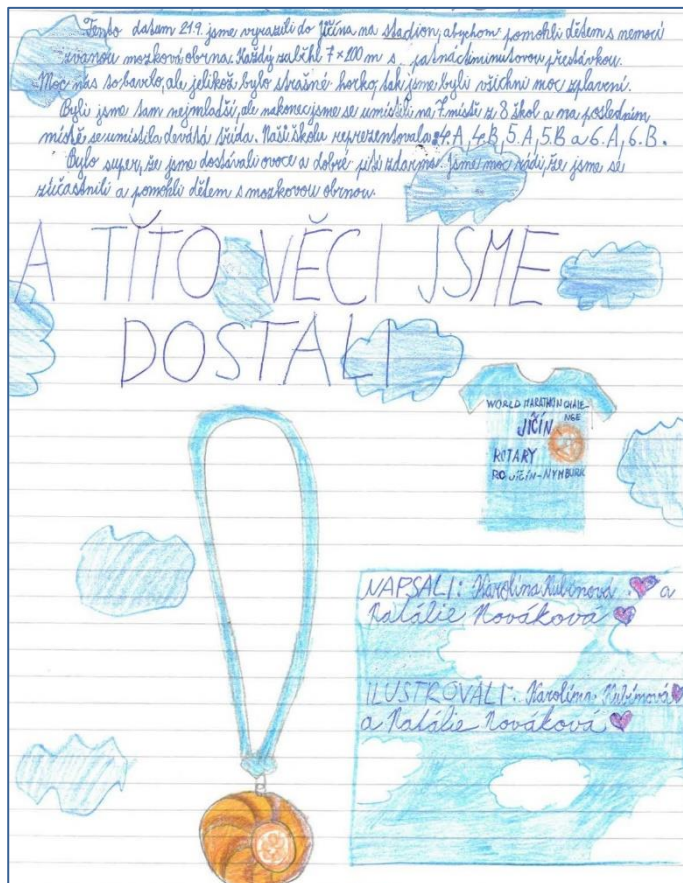 Tento datum 21.9. jsme vyrazili do Jičína na stadion, abychom pomohli dětem s nemocí
zvanou mozková obrna. Každý zaběhl 7×200 m s patnáctiminutovou přestávkou.
Moc nás to bavilo, ale jelikož bylo strašné horko, tak jsme byli všichni moc splavení.
Byli jsme tam nejmladší, ale nakonec jsme se umístili na 7. místě z 8 škol a na posledním
místě se umístila devátá třída. Naši školu reprezentovala 4.A, 4.B, 5.A, 5.B a 6.A, 6.B.
Bylo super, že jsme dostávali ovoce a dobré pití zdarma. Jsme moc rádi, že jsme se
zúčastnili a pomohli dětem s mozkovou obrnou.
A TÍTO VĚCI JSME
DOSTALI
WORLD MARATHON CHALE-
NGE
JIČÍN
ROTARY
RC JIČÍN-NYMBURK
NAPSALI: Karolína Kubínová a
Natálie Nováková
ILUSTROVALI: Karolína Kubínová
a Natálie Nováková